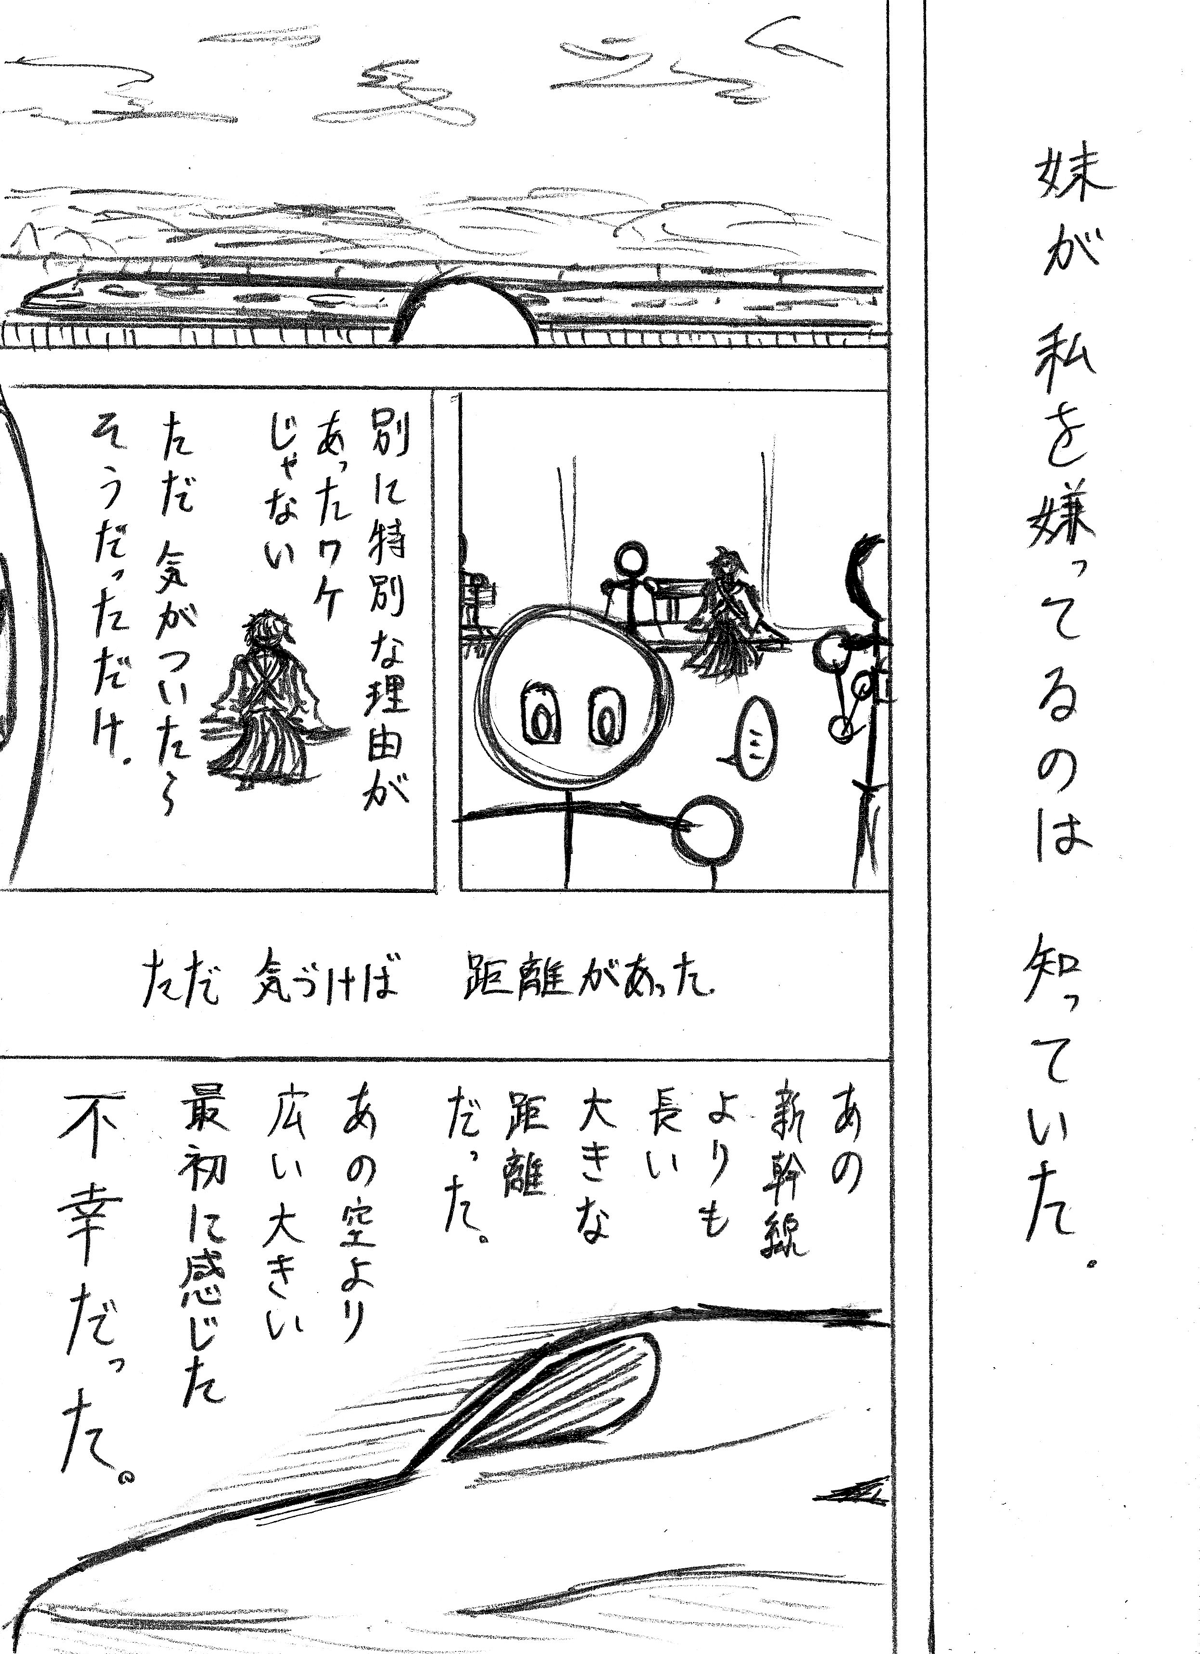 妹が 私を嫌ってるのは 知っていた。
別に特別な理由が
あったワケ
じゃない
ただ 気がついたら
そうだっただけ.
ただ 気づけば 距離があった.
あの
新幹線
よりも
長い
大きな
距離
だった。
あの空より
広い大きい
最初に感じた
不幸だった。